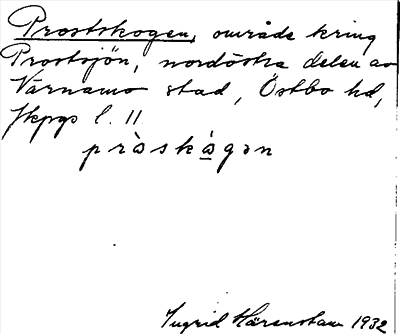 Prostskogen, område kring
Prostsjön, nordöstra delen av
Värnamo stad, Östbo hd,
Jkpgs l. 11
pròskògən
Ingrid Härenstam 1932